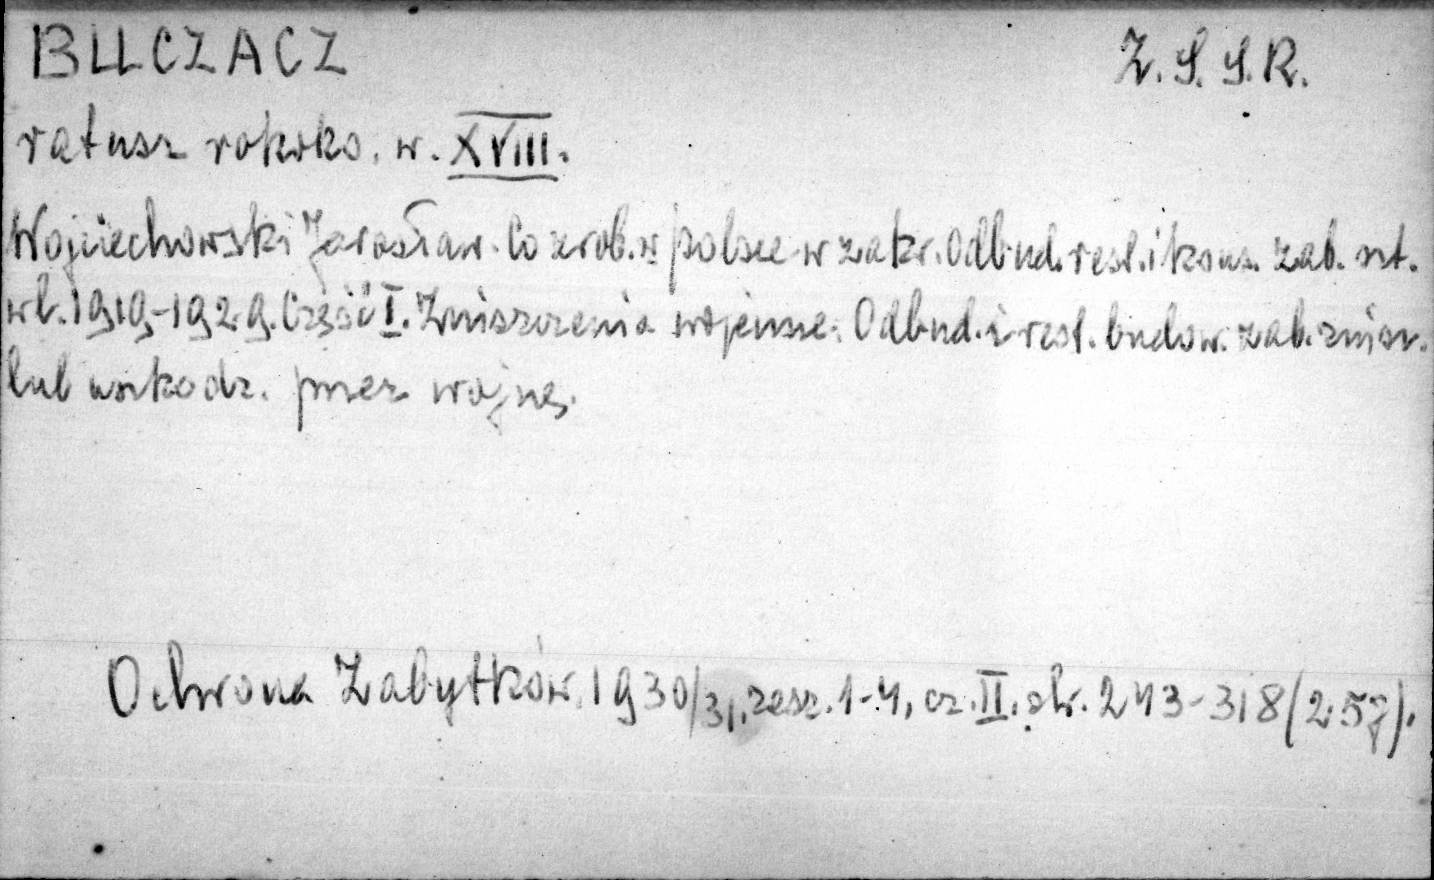 BUCZACZ Z.S.S.R.
ratusz rokoko. w. XVIII.
Wojciechowski Jarosław. Co zrob. w polsce w zakr. Odbud. rest. i kons. zab. szt.
w l. 1919-1929. Część I. Zniszczenia wojenne. Odbud. i rest. budow. zab. zniszcz.
lub uszkodz. przez wojnę.
Ochrona Zabytków. 1930/31, zesz. 1-4, cz. II. str. 243-318 (257).